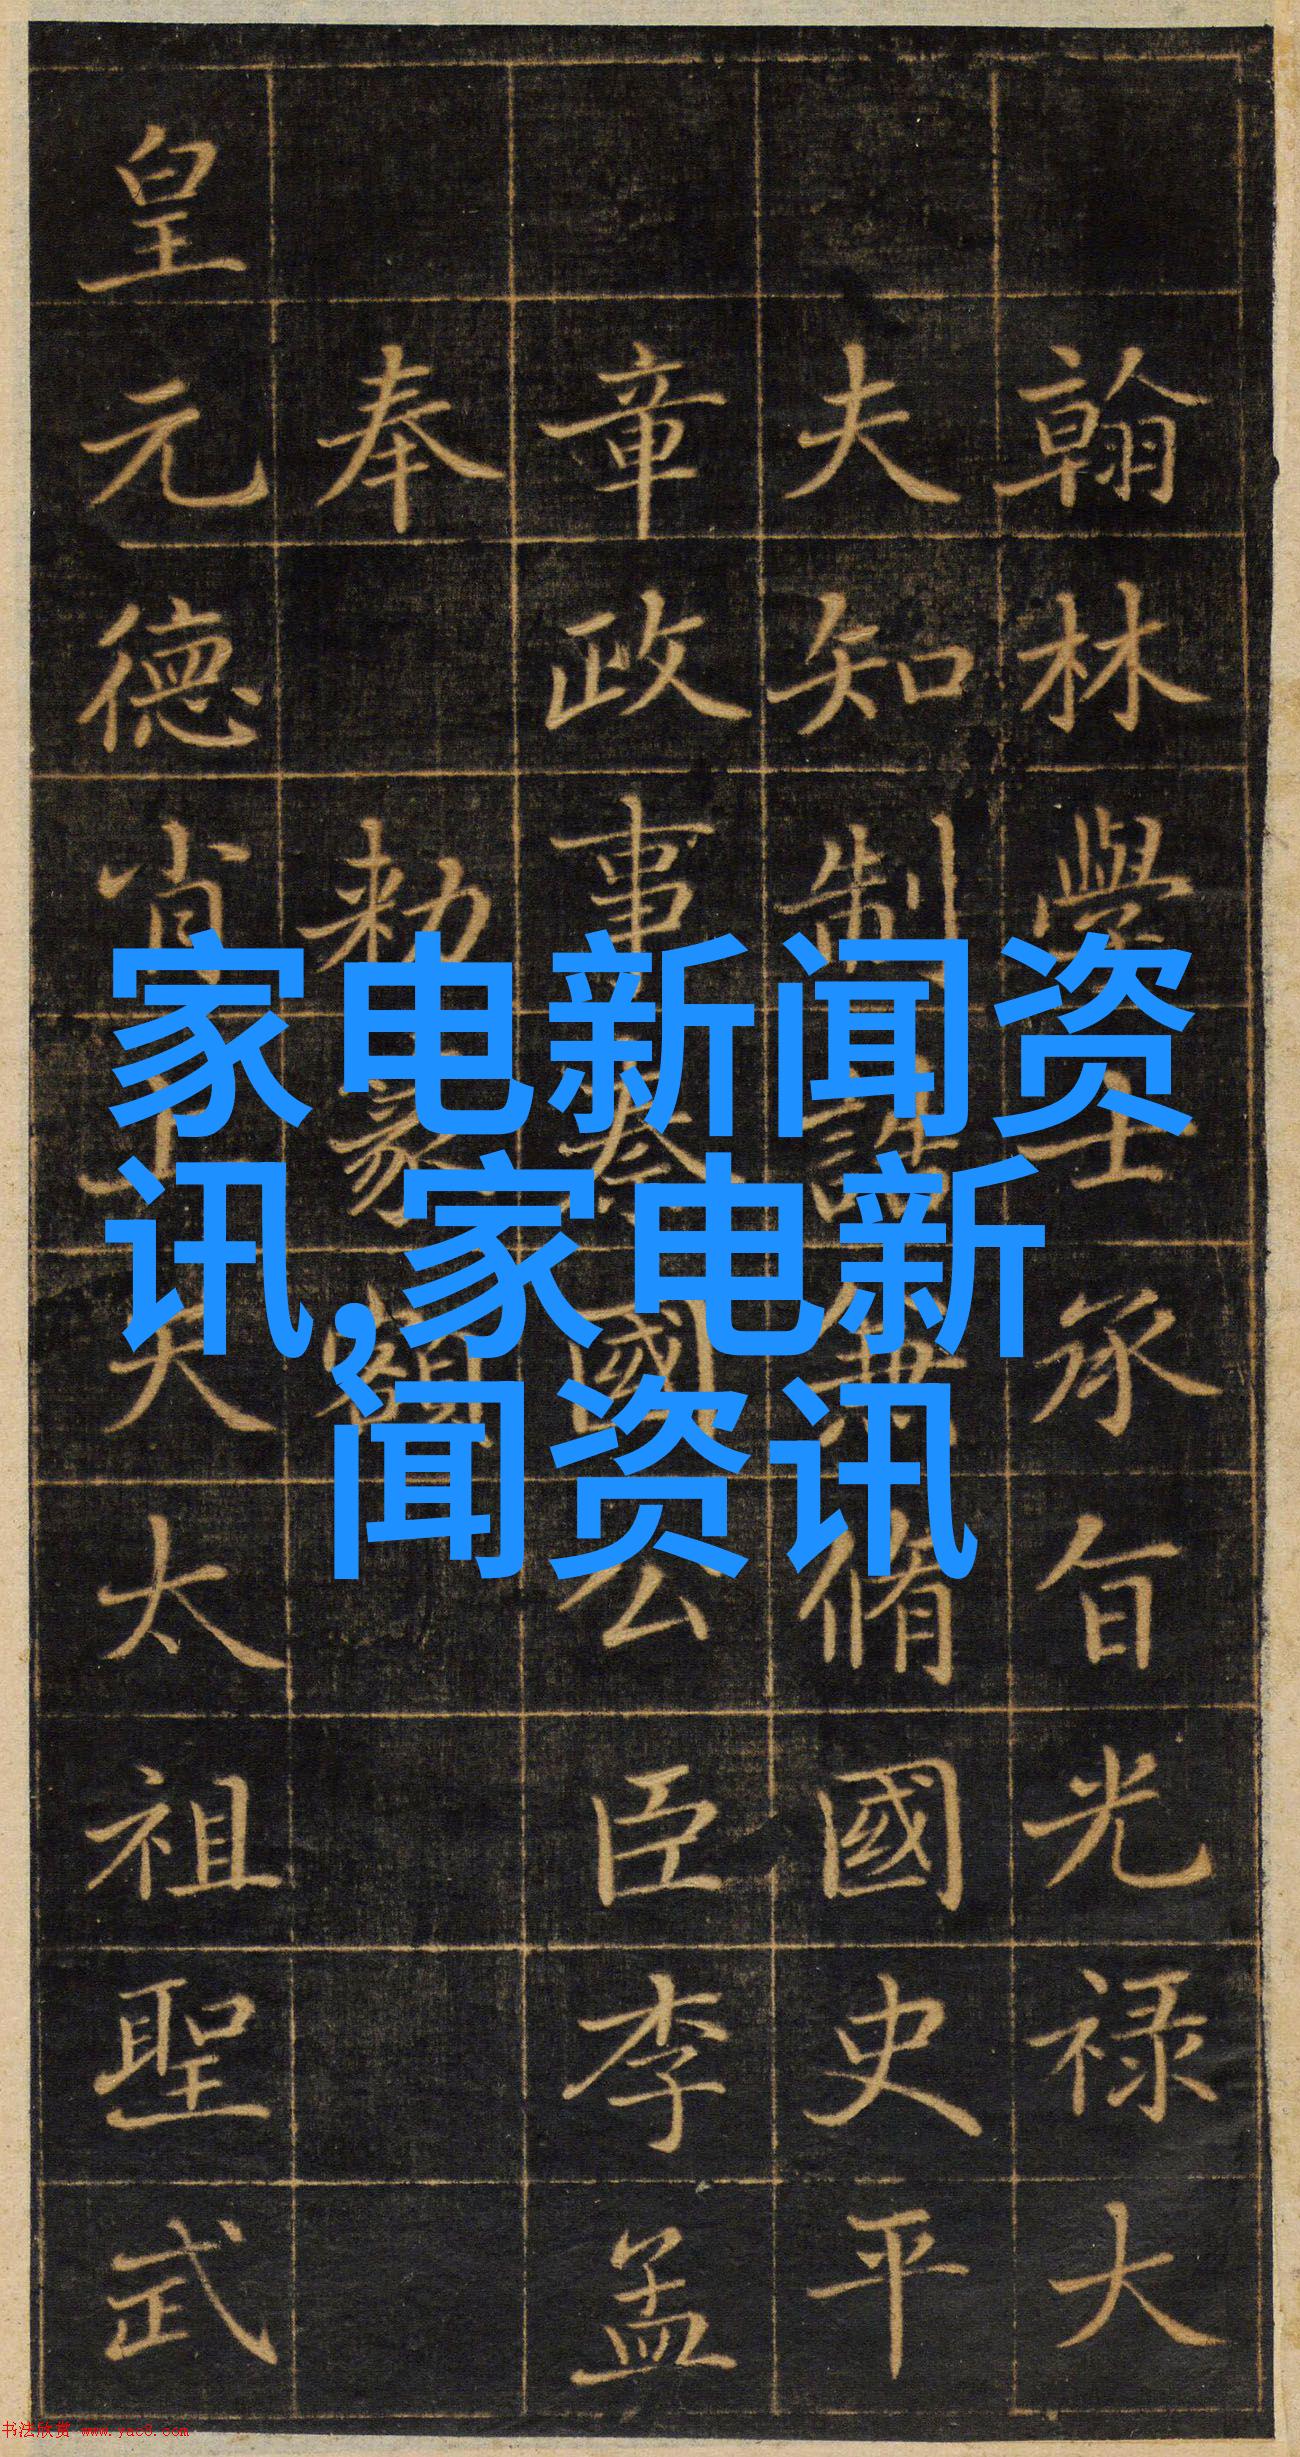 翰林學士承旨光禄大
夫知制誥兼脩國史平
章政事國公臣李孟
奉 勅篆額
皇元德肖天太祖聖武
家电新闻资
讯,家电新
闻资讯
书法欣赏 www.yac8.com